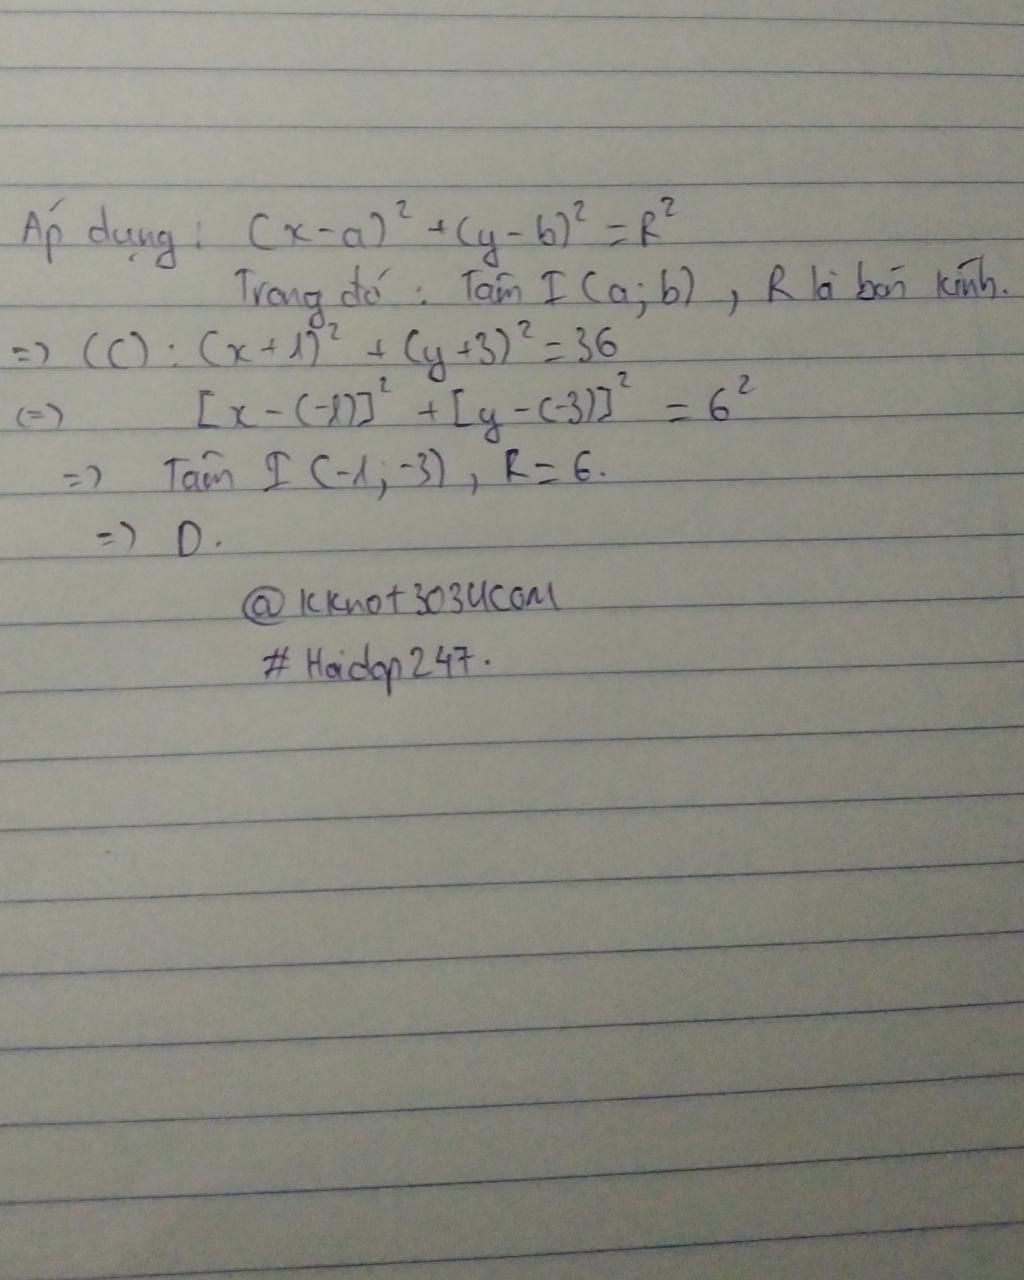 Áp dụng: (x-a)² + (y-b)² = R²
Trong đó: Tâm I (a; b), R là bán kính.
=> (C): (x+1)² + (y+3)² = 36
(=) [x-(-1)]² + [y-(-3)]² = 6²
=> Tâm I (-1; -3), R = 6.
=> D.
@kknot3034com
# Hoidap247.